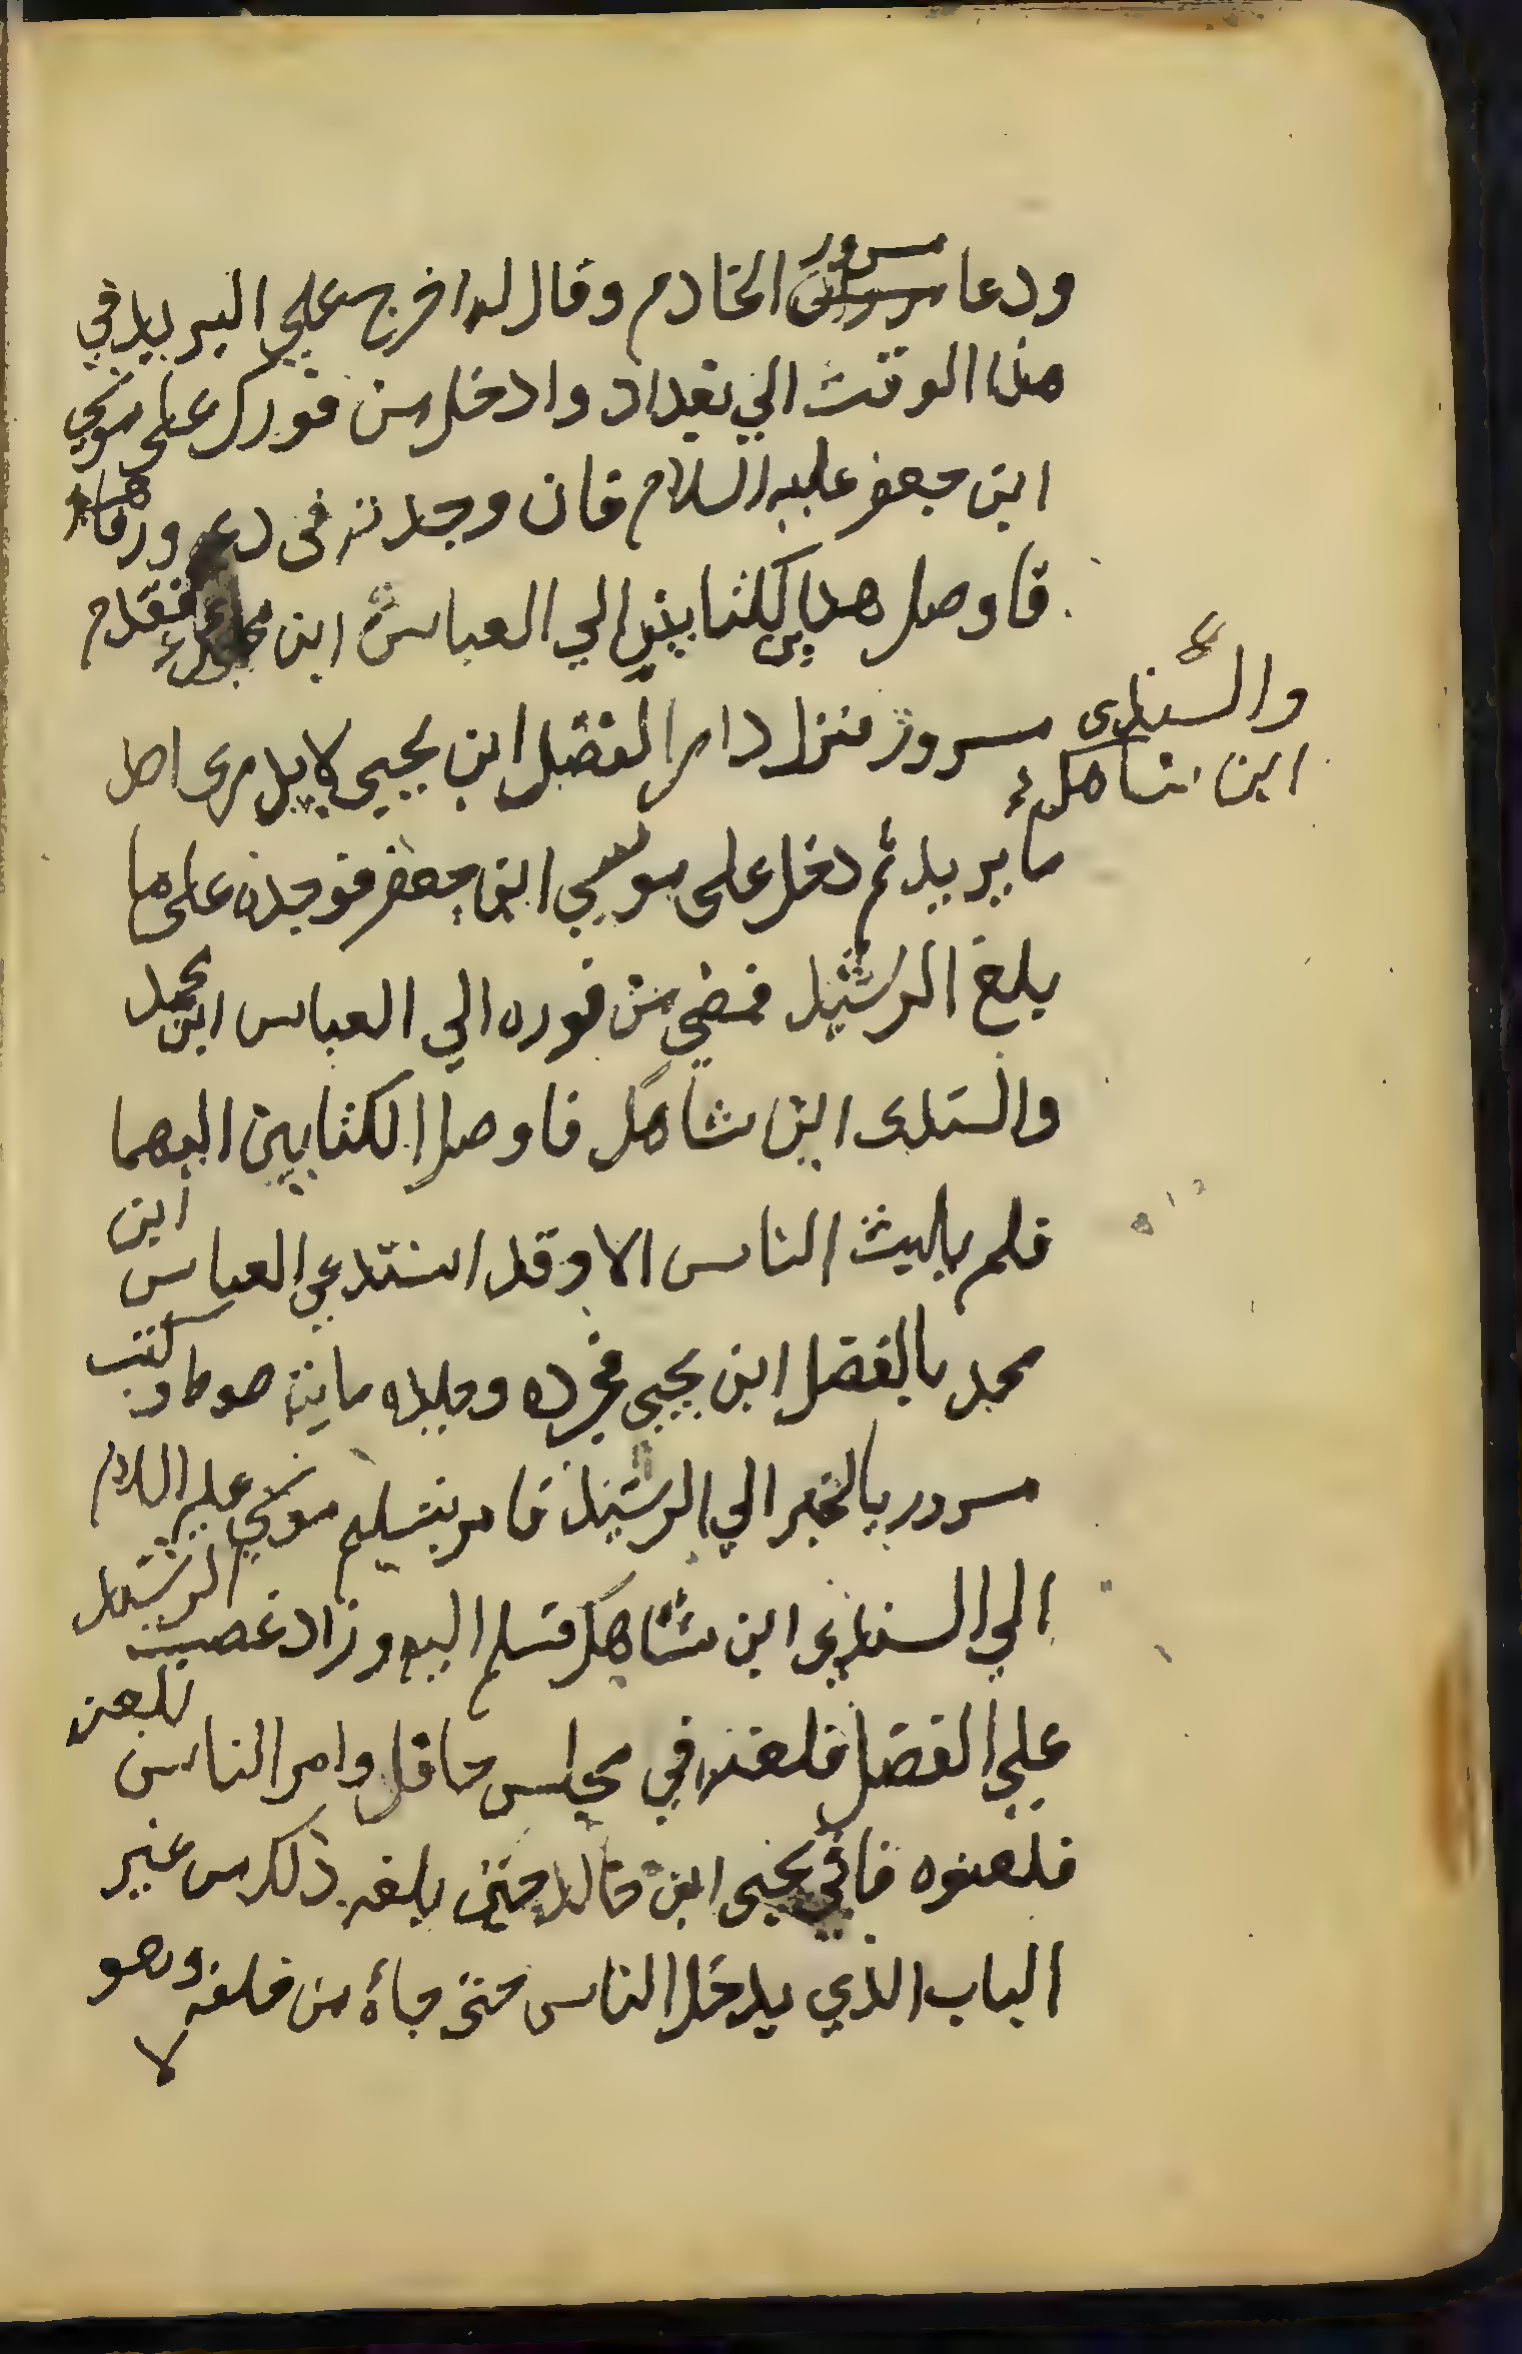 ودعا مسرور الخادم وقال له اخرج علي البريد في
هذا الوقت الي بغداد وادخل من فورك على موسي
ابن جعفر عليه السلام فان وجدته في دعه ورفاه
فاوصل هذين الكتابين الي العباس ابن محمد فقدم
والسندى
ابن شاهك
مسرور فنزل دار الفضل ابن يحيي لا يدري احد
ما يريد ثم دخل على موسي ابن جعفر فوجده على ما
بلغ الرشيد فمضي من فوره الي العباس ابن محمد
والسندى ابن شاهك فاوصل الكتابين اليهما
فلم يلبث الناس الا وقد استدعي العباس ابن
محمد بالفضل ابن يحيي فجرده وجلده ماية صوط وكتب
مسرور بالخبر الي الرشيد فامر بتسليم موسي عليه السلام
الي السندي ابن شاهك فتسلم اليه وزاد غضب الرشيد
علي الفضل فلعنه في مجلس حافل وامر الناس بلعنه
فلعنوه فاتي يحيى ابن خالد حين بلغه ذلك من غير
الباب الذي يدخل الناس حتى جاءه من خلفه وهو
لا